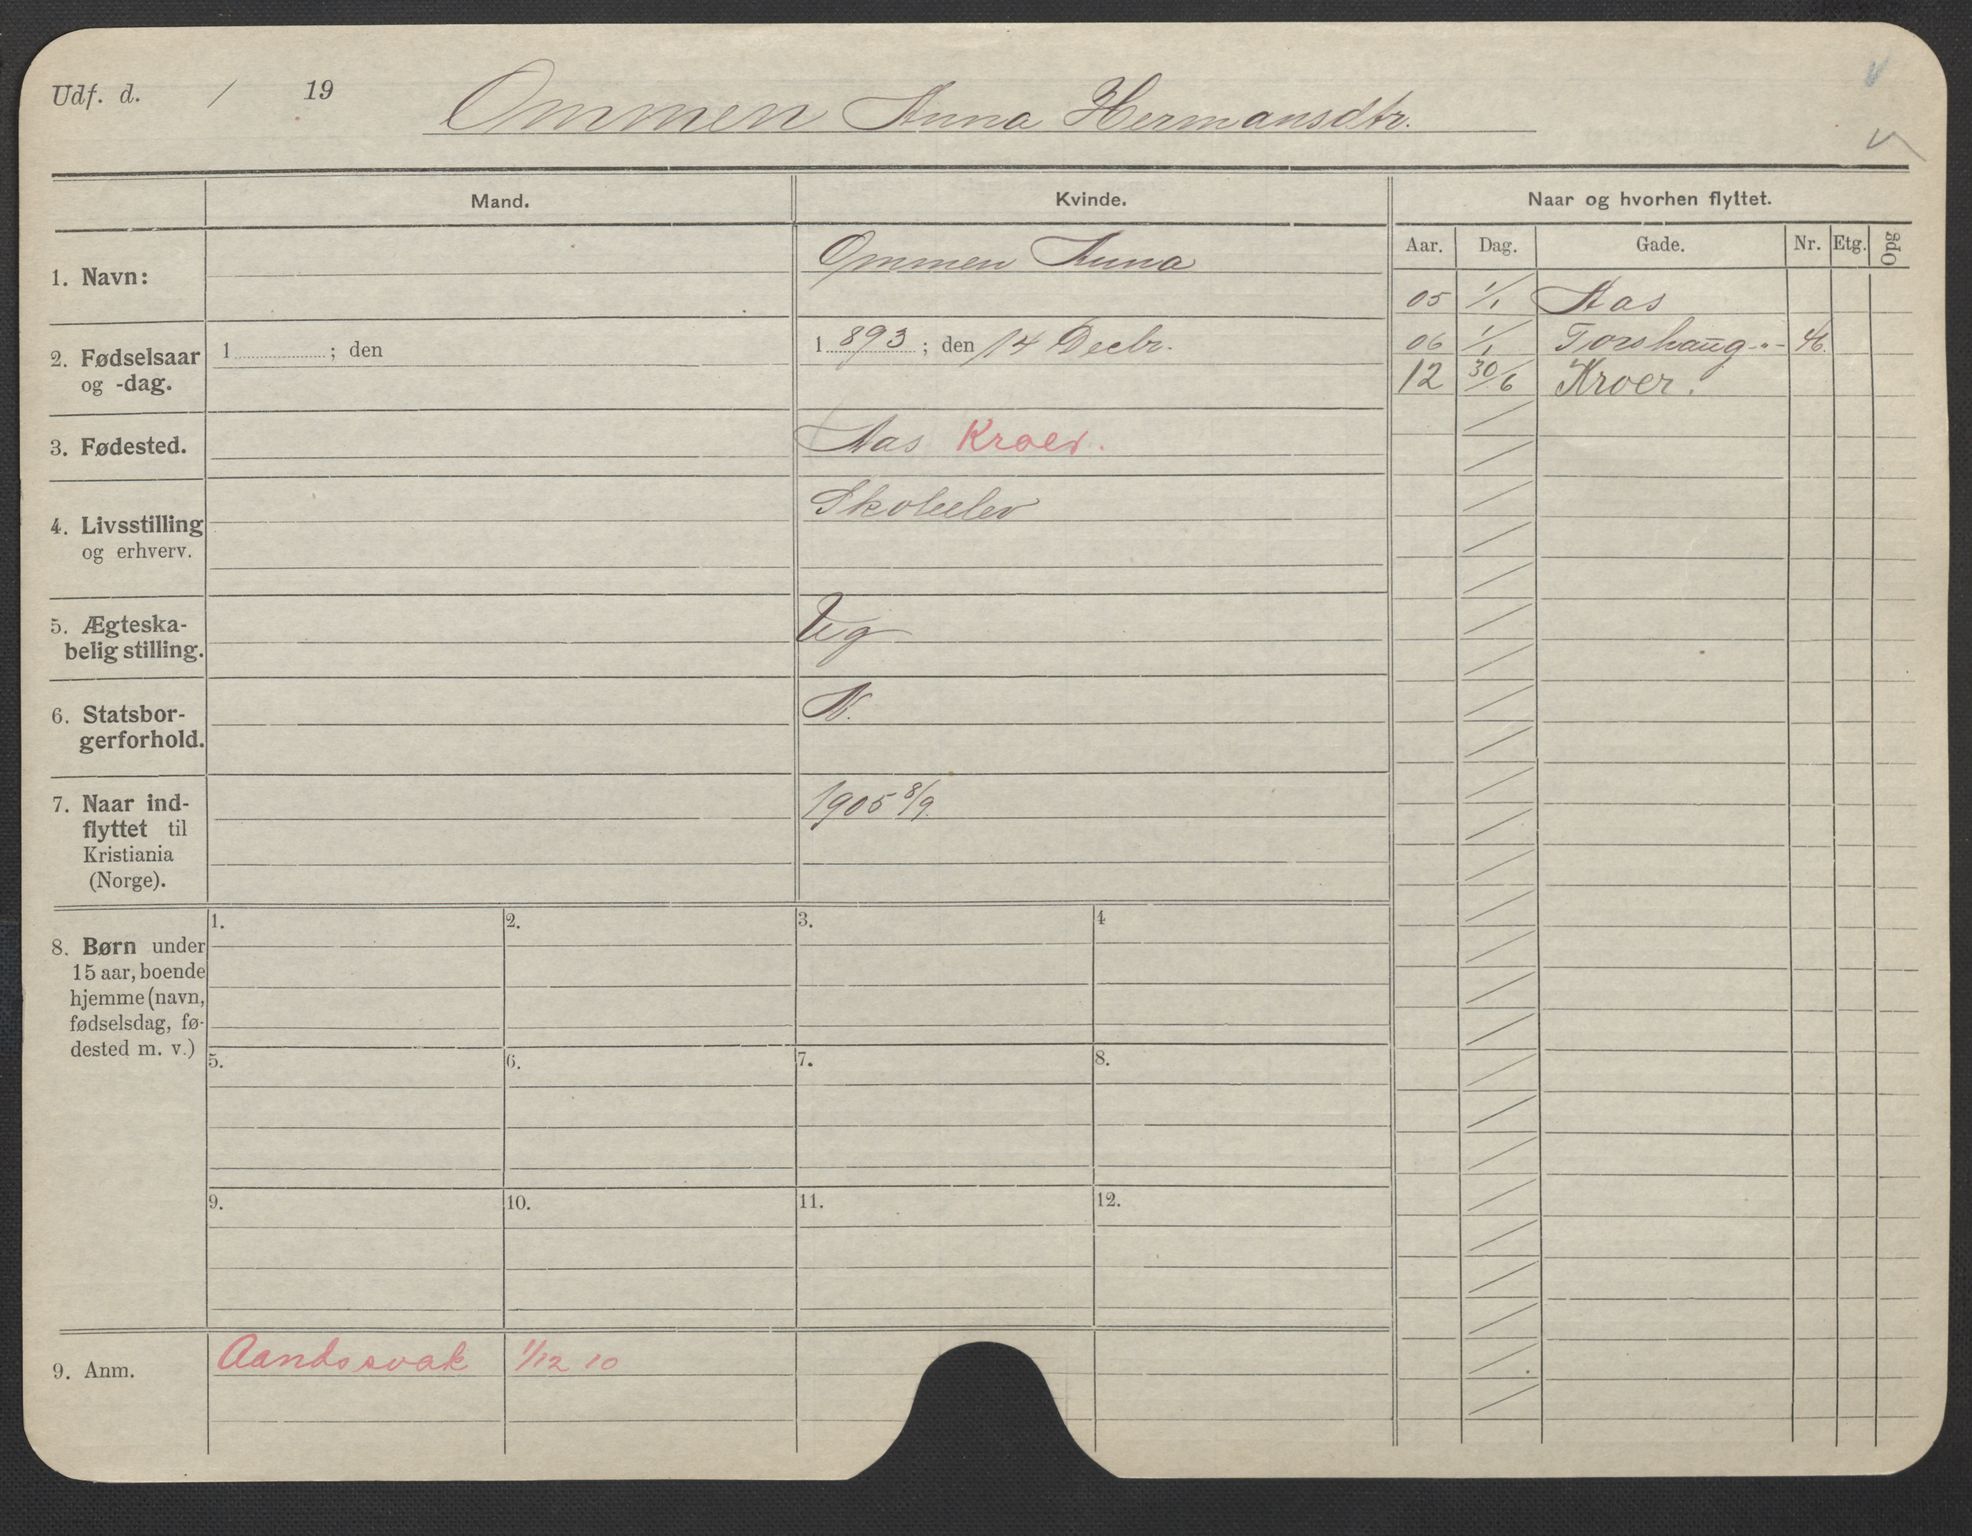 Udf. d. / 19 Ommen Anna Hermansdtr.
Mand. Kvinde. Naar og hvorhen flyttet.
Aar. Dag. Gade. Nr. Etg. Opg
1. Navn: Ommen Anna
05 1/1 Aas
06 1/1 Torshaug -"- 46.
12 30/6 Kroer.
2. Fødselsaar 1 ; den 1893 ; den 14 Decbr.
og -dag.
3. Fødested. Aas Kroer.
4. Livsstilling Skoleelev
og erhverv.
5. Ægteska- Ug
belig stilling.
6. Statsbor- N.
gerforhold.
7. Naar ind- 1905 8/9.
flyttet til
Kristiania
(Norge).
1. 2. 3. 4
8. Børn under
15 aar, boende
hjemme (navn,
fødselsdag, fø-
dested m. v.)
5. 6. 7. 8.
9. 10. 11. 12.
9. Anm. Aandssvak 1/12 10